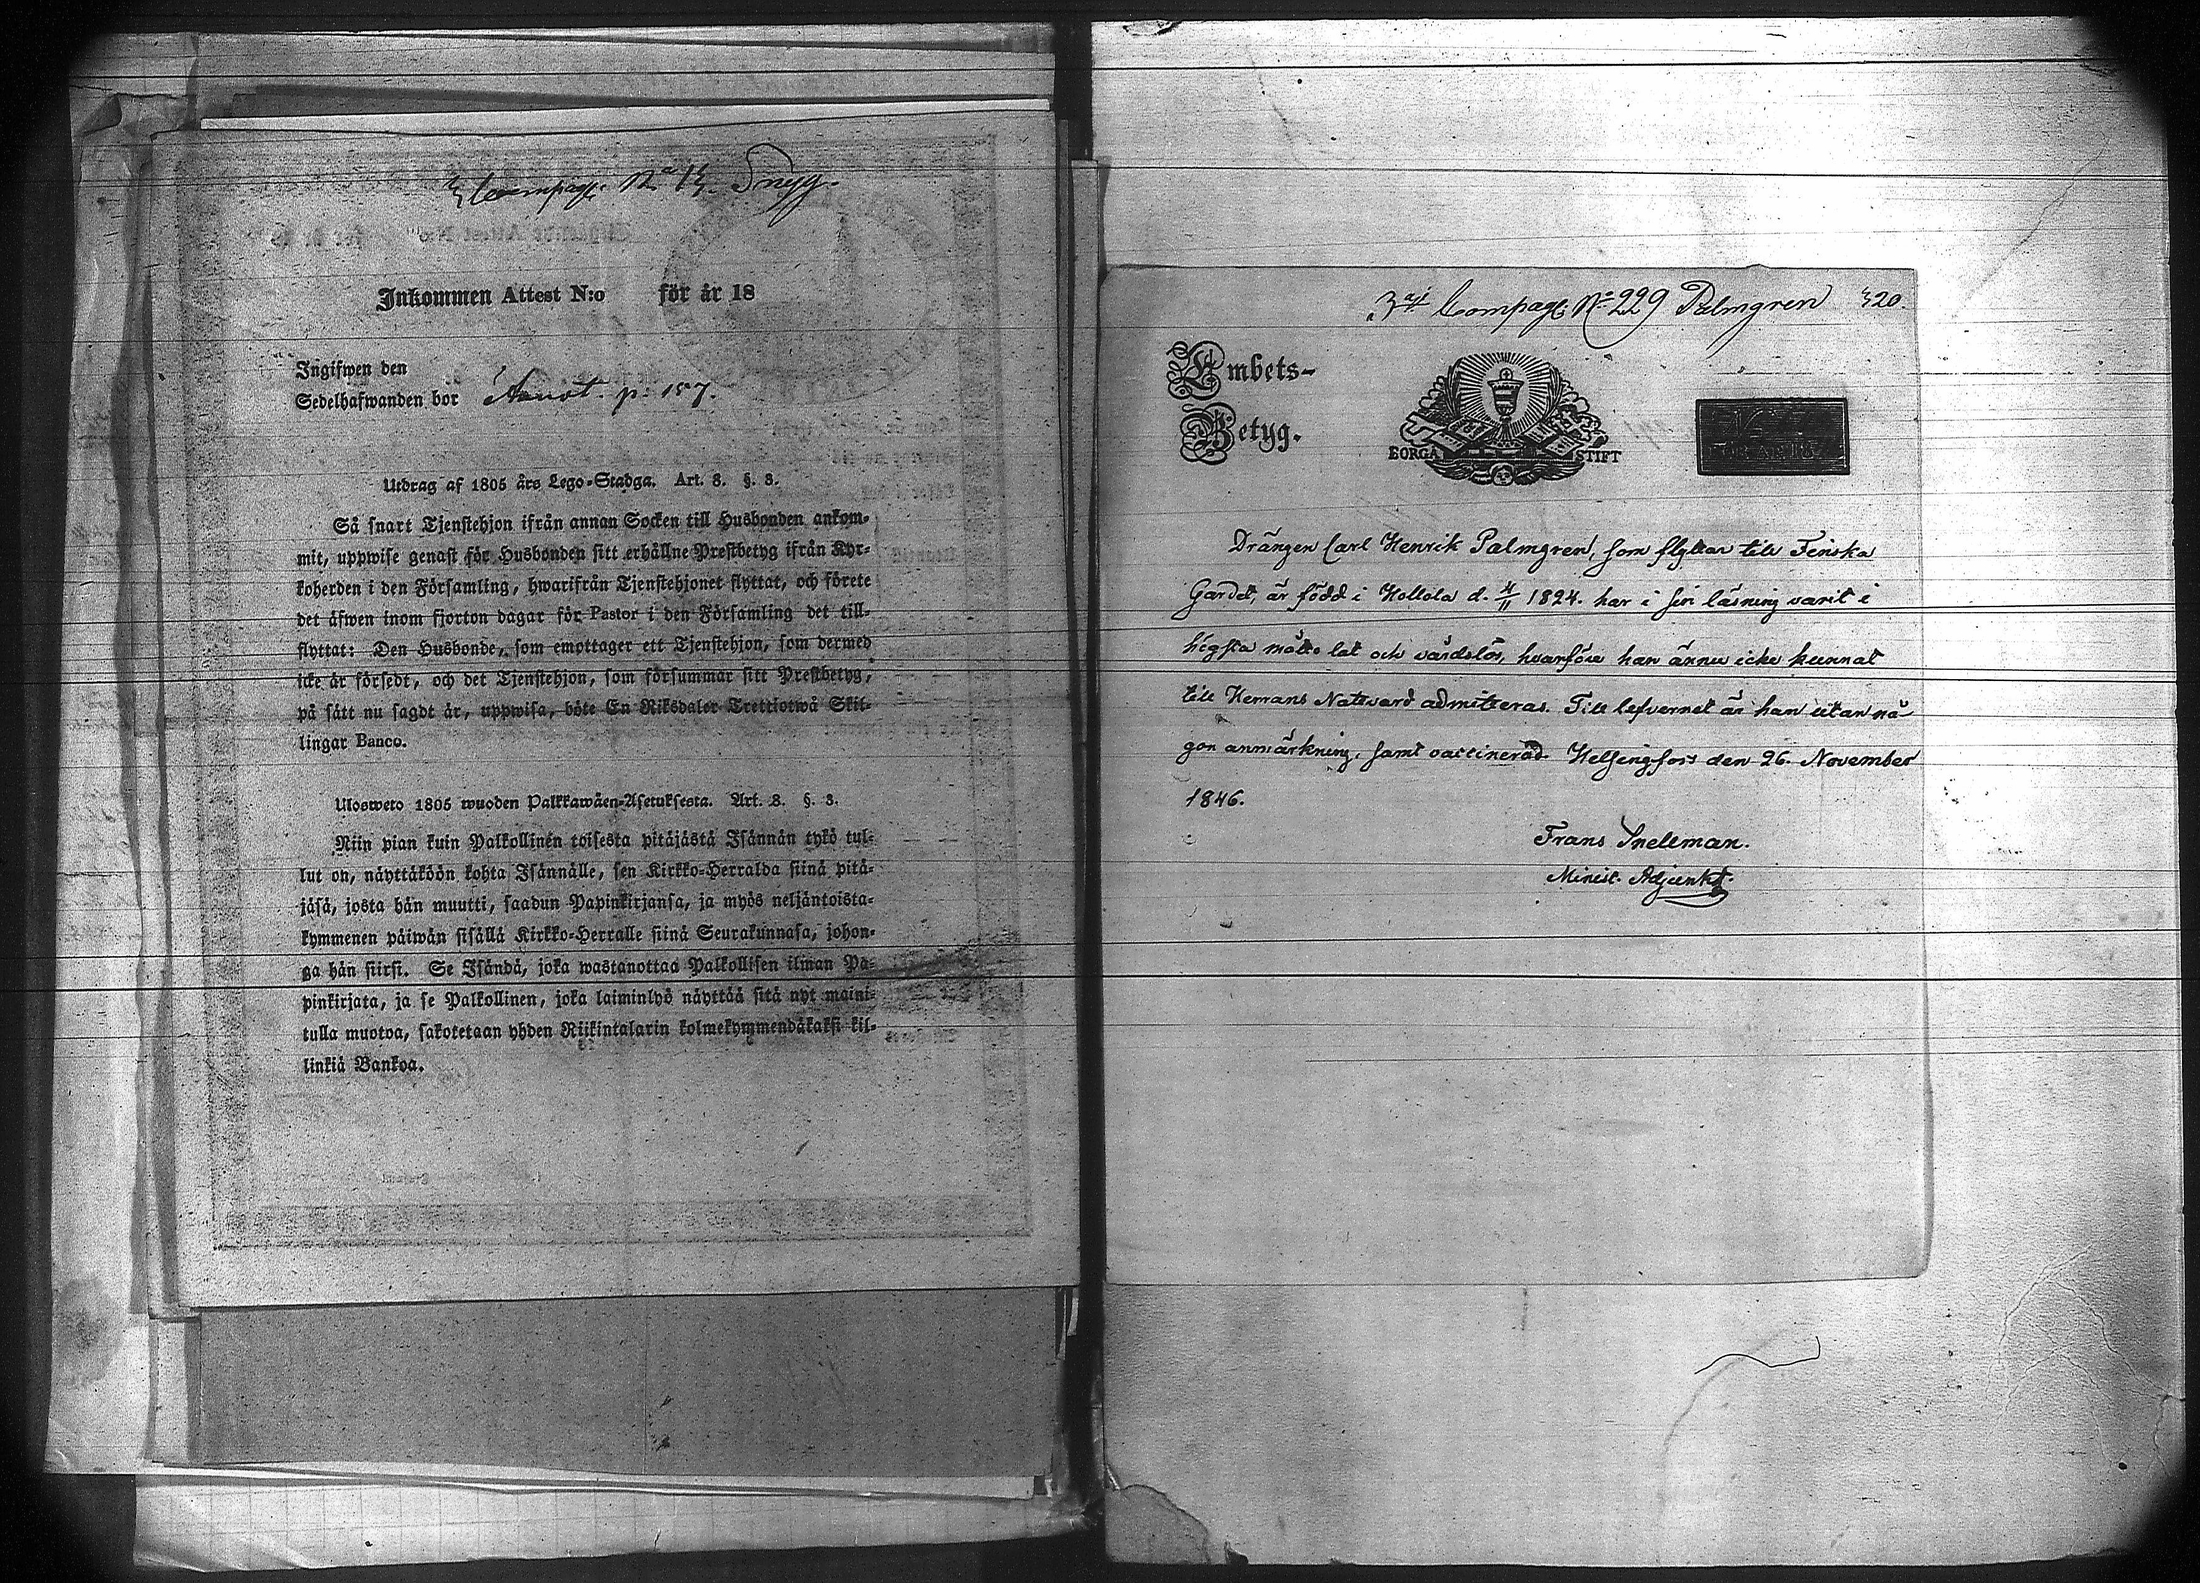 Compagt. No 13. Snygg.
Inkommen Attest N:o för år 18
Ingifwen den
Sedelhafwanden bor p: 157.
Utdrag af 1805 års Lego-Stadga. Art. 3. §. 3.
Så snart Tjenstehjon ifrån annan Socken till Husbonden ankom-
mit, uppwise genast för Husbonden sitt erhållne Prestbetyg ifrån Kyr-
koherden i den Församling, hwarifrån Tjenstehjonet flyttat, och förete
det äfwen inom fjorton dagar för Pastor i den Församling det till-
flyttat: Den Husbonde, som emottager ett Tjenstehjon, som dermed
icke är försedt, och det Tjenstehjon, som försummar sitt Prestbetyg,
på sätt nu sagdt är, uppwisa, böte En Riksdaler Trettiotwå Skil-
lingar Banco.
Ulosweto 1805 wuoden Palkkawäen-Asetuksesta. Art. 3. §. 3.
Niin pian kuin Palkollinen toisesta pitäjästä Isännän tykö tul-
lut on, näyttäköön kohta Isännälle, sen Kirkko-Herralda siinä pitä-
jäsä, josta hän muutti, saadun Papinkirjansa, ja myös neljäntoista-
kymmenen päiwän sisällä Kirkko-Herralle siinä Seurakunnasa, johon-
ga hän siirsi. Se Isändä, joka wastanottaa Palkollisen ilman Pa-
pinkirjata, ja se Palkollinen, joka laiminlyö näyttää sitä nyt maini-
tulla muotoa, sakotetaan yhden Riikintalarin kolmekymmendäkaksi kil-
linkiä Bankoa.
3dje Compagt. No 229 Palmgren 320.
Embets-
Betyg.
BORGÅ STIFT
FÖR ÅR 18
Drängen Carl Henrik Palmgren, som flyttar till Finska
Gardet, är född i Hollola d. 4/11 1824. har i sin läsning varit i
högsta måtto lat och vårdslös, hvarföre han ännu icke kunnat
till Herrans Nattvard admitteras. Till lefvernet är han utan nå-
gon anmärkning, samt vaccinerad. Helsingfors den 26. November
1846.
Frans Snellman.
Minist. Adjunkt.